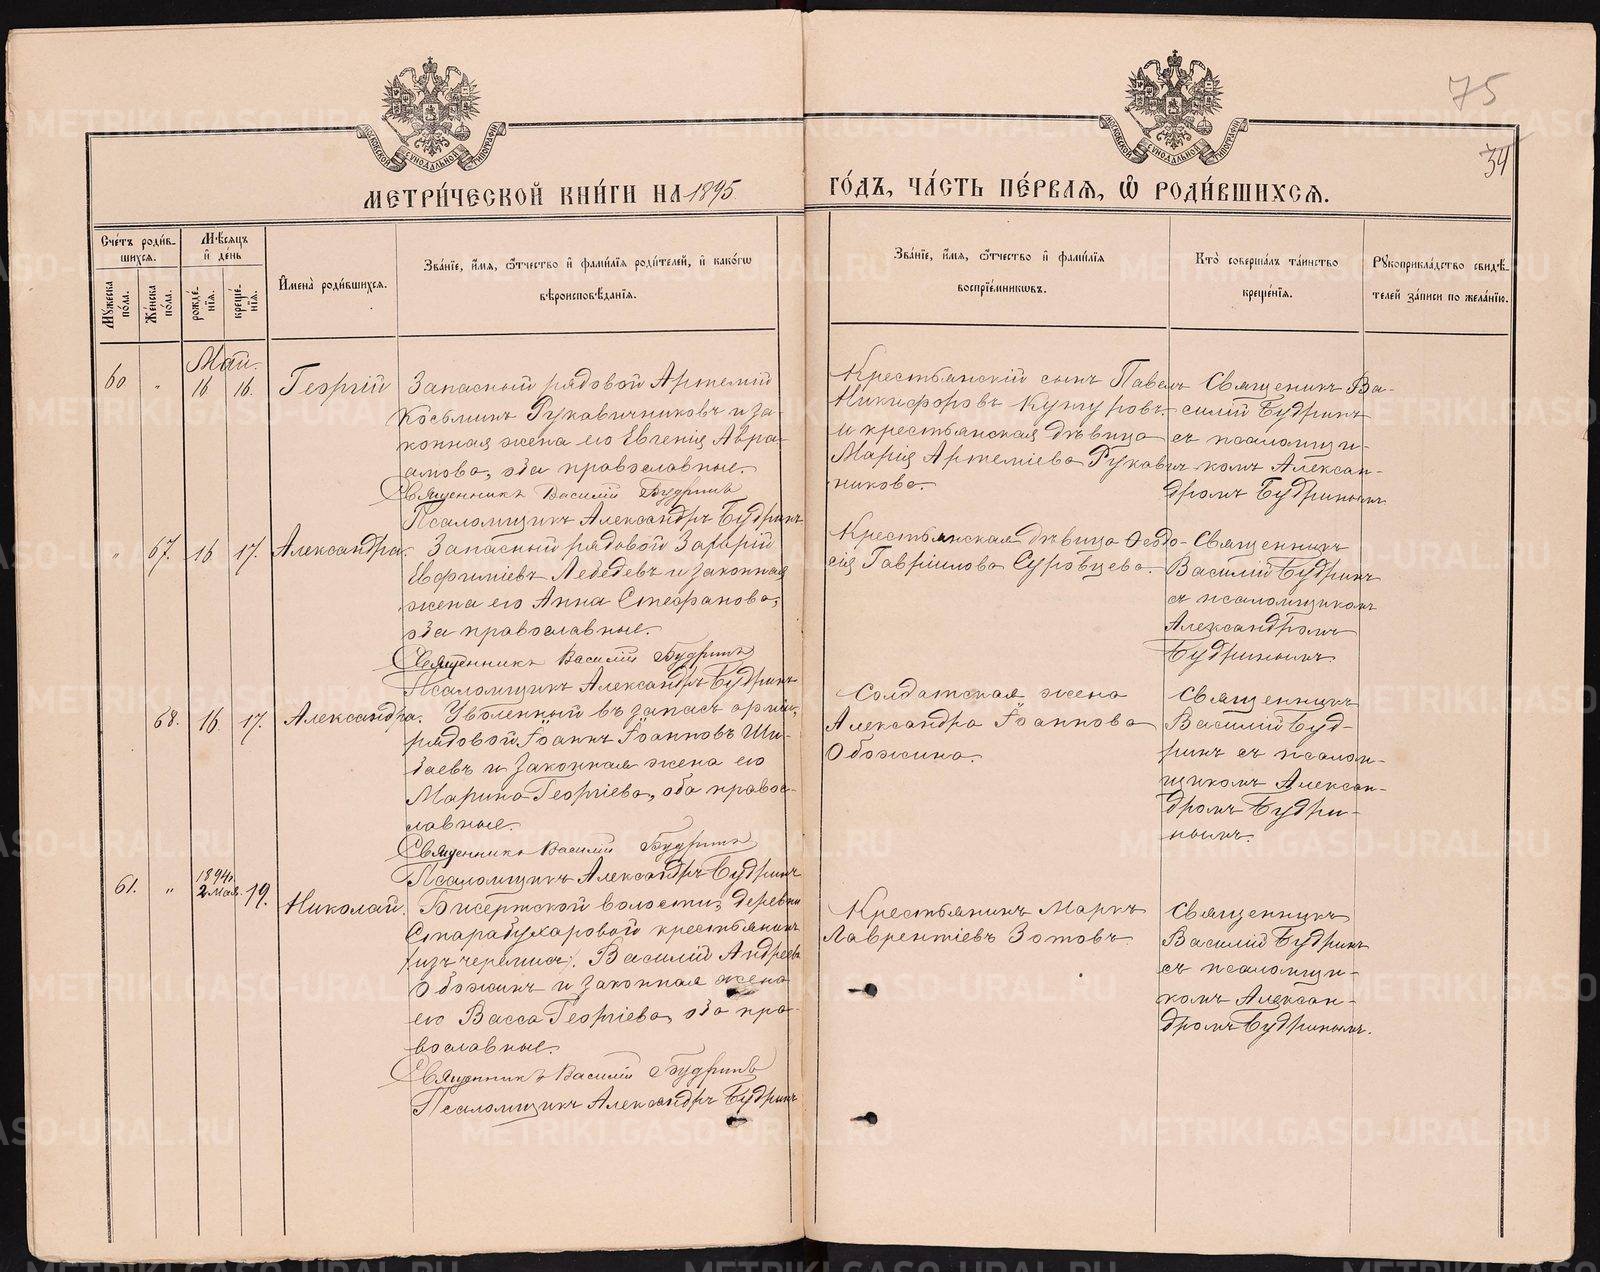 75
34
МОСКОВСКОЙ СѴНОДАЛЬНОЙ ТИПОГРАФІИ
МОСКОВСКОЙ СѴНОДАЛЬНОЙ ТИПОГРАФІИ
МЕТРИ́ЧЕСКОЙ КНИ́ГИ НА 1895
ГО́ДЪ, ЧА́СТЬ ПЕ́РВАЯ, Ѿ РОДИ́ВШИХСЯ.
Сче́тъ роди́в-
шихся.
Мꙋ́жеска
по́ла.
Же́нска
по́ла.
Мѣ́сяцъ
и҆ де́нь
рожде́-
нїя.
креще́-
нїя.
И҆мена̀ роди́вшихся.
Зва́нїе, и҆́мя, ѻ҆́тчество и҆ фами́лїя роди́телей, и҆ како́гѡ
вѣроисповѣ́данїя.
Зва́нїе, и҆́мя, ѻ҆́тчество и҆ фами́лїя
воспрїе́мникѡвъ.
Кто̀ соверша́лъ та́инство
креще́нїя.
Рꙋкоприкла́дство свидѣ́-
телей за́писи по жела́нїю.
Май.
60
"
16
16.
Георгій
Запасный рядовой Артемій
Косьминъ Рукавичниковъ и за-
конная жена его Евгенія Авра-
амова, оба православные.
Священникъ Василій Будринъ
Псаломщикъ Александръ Будринъ
Крестьянскій сынъ Павелъ
Никифоровъ Кутуровъ
и крестьянская дѣвица
Марія Артеміева Рукавич-
никова.
Священикъ Ва-
силій Будринъ
съ псаломщи-
комъ Алексан-
дромъ Будринымъ
"
67.
16
17.
Александра.
Запасный рядовой Захарій
Евфиміевъ Лебедевъ и законная
жена его Анна Стефанова,
оба православные.
Священникъ Василій Будринъ
Псаломщикъ Александръ Будринъ
Крестьянская дѣвица Ѳеодо-
сія Гавріилова Суровцева.
Священникъ
Василій Будринъ
съ псаломщикомъ
Александромъ
Будринымъ.
68.
16
17.
Александра.
Уволенный въ запасъ арміи,
рядовой Іоаннъ Іоанновъ Ши-
баевъ и законная жена его
Марина Георгіева, оба правос-
лавные.
Священникъ Василій Будринъ
Псаломщикъ Александръ Будринъ
Солдатская жена
Александра Іоаннова
Обожина.
Священникъ
Василій Буд-
ринъ съ псалом-
щикомъ Алексан-
дромъ Будри-
нымъ.
61.
"
1894г.
2 мая.
19.
Николай.
Бисертской волости, деревни
Старабухаровой крестьянинъ
/изъ черемисъ/. Василій Андреевъ
Обожинъ и законная жена
его Васса Георгіева, оба пра-
вославные.
Священникъ Василій Будринъ
Псаломщикъ Александръ Будринъ
Крестьянинъ Маркъ
Лаврентіевъ Зотовъ.
Священникъ
Василій Будринъ
съ псаломщи-
комъ Алексан-
дромъ Будринымъ.
METRIKI.GASO-URAL.RU